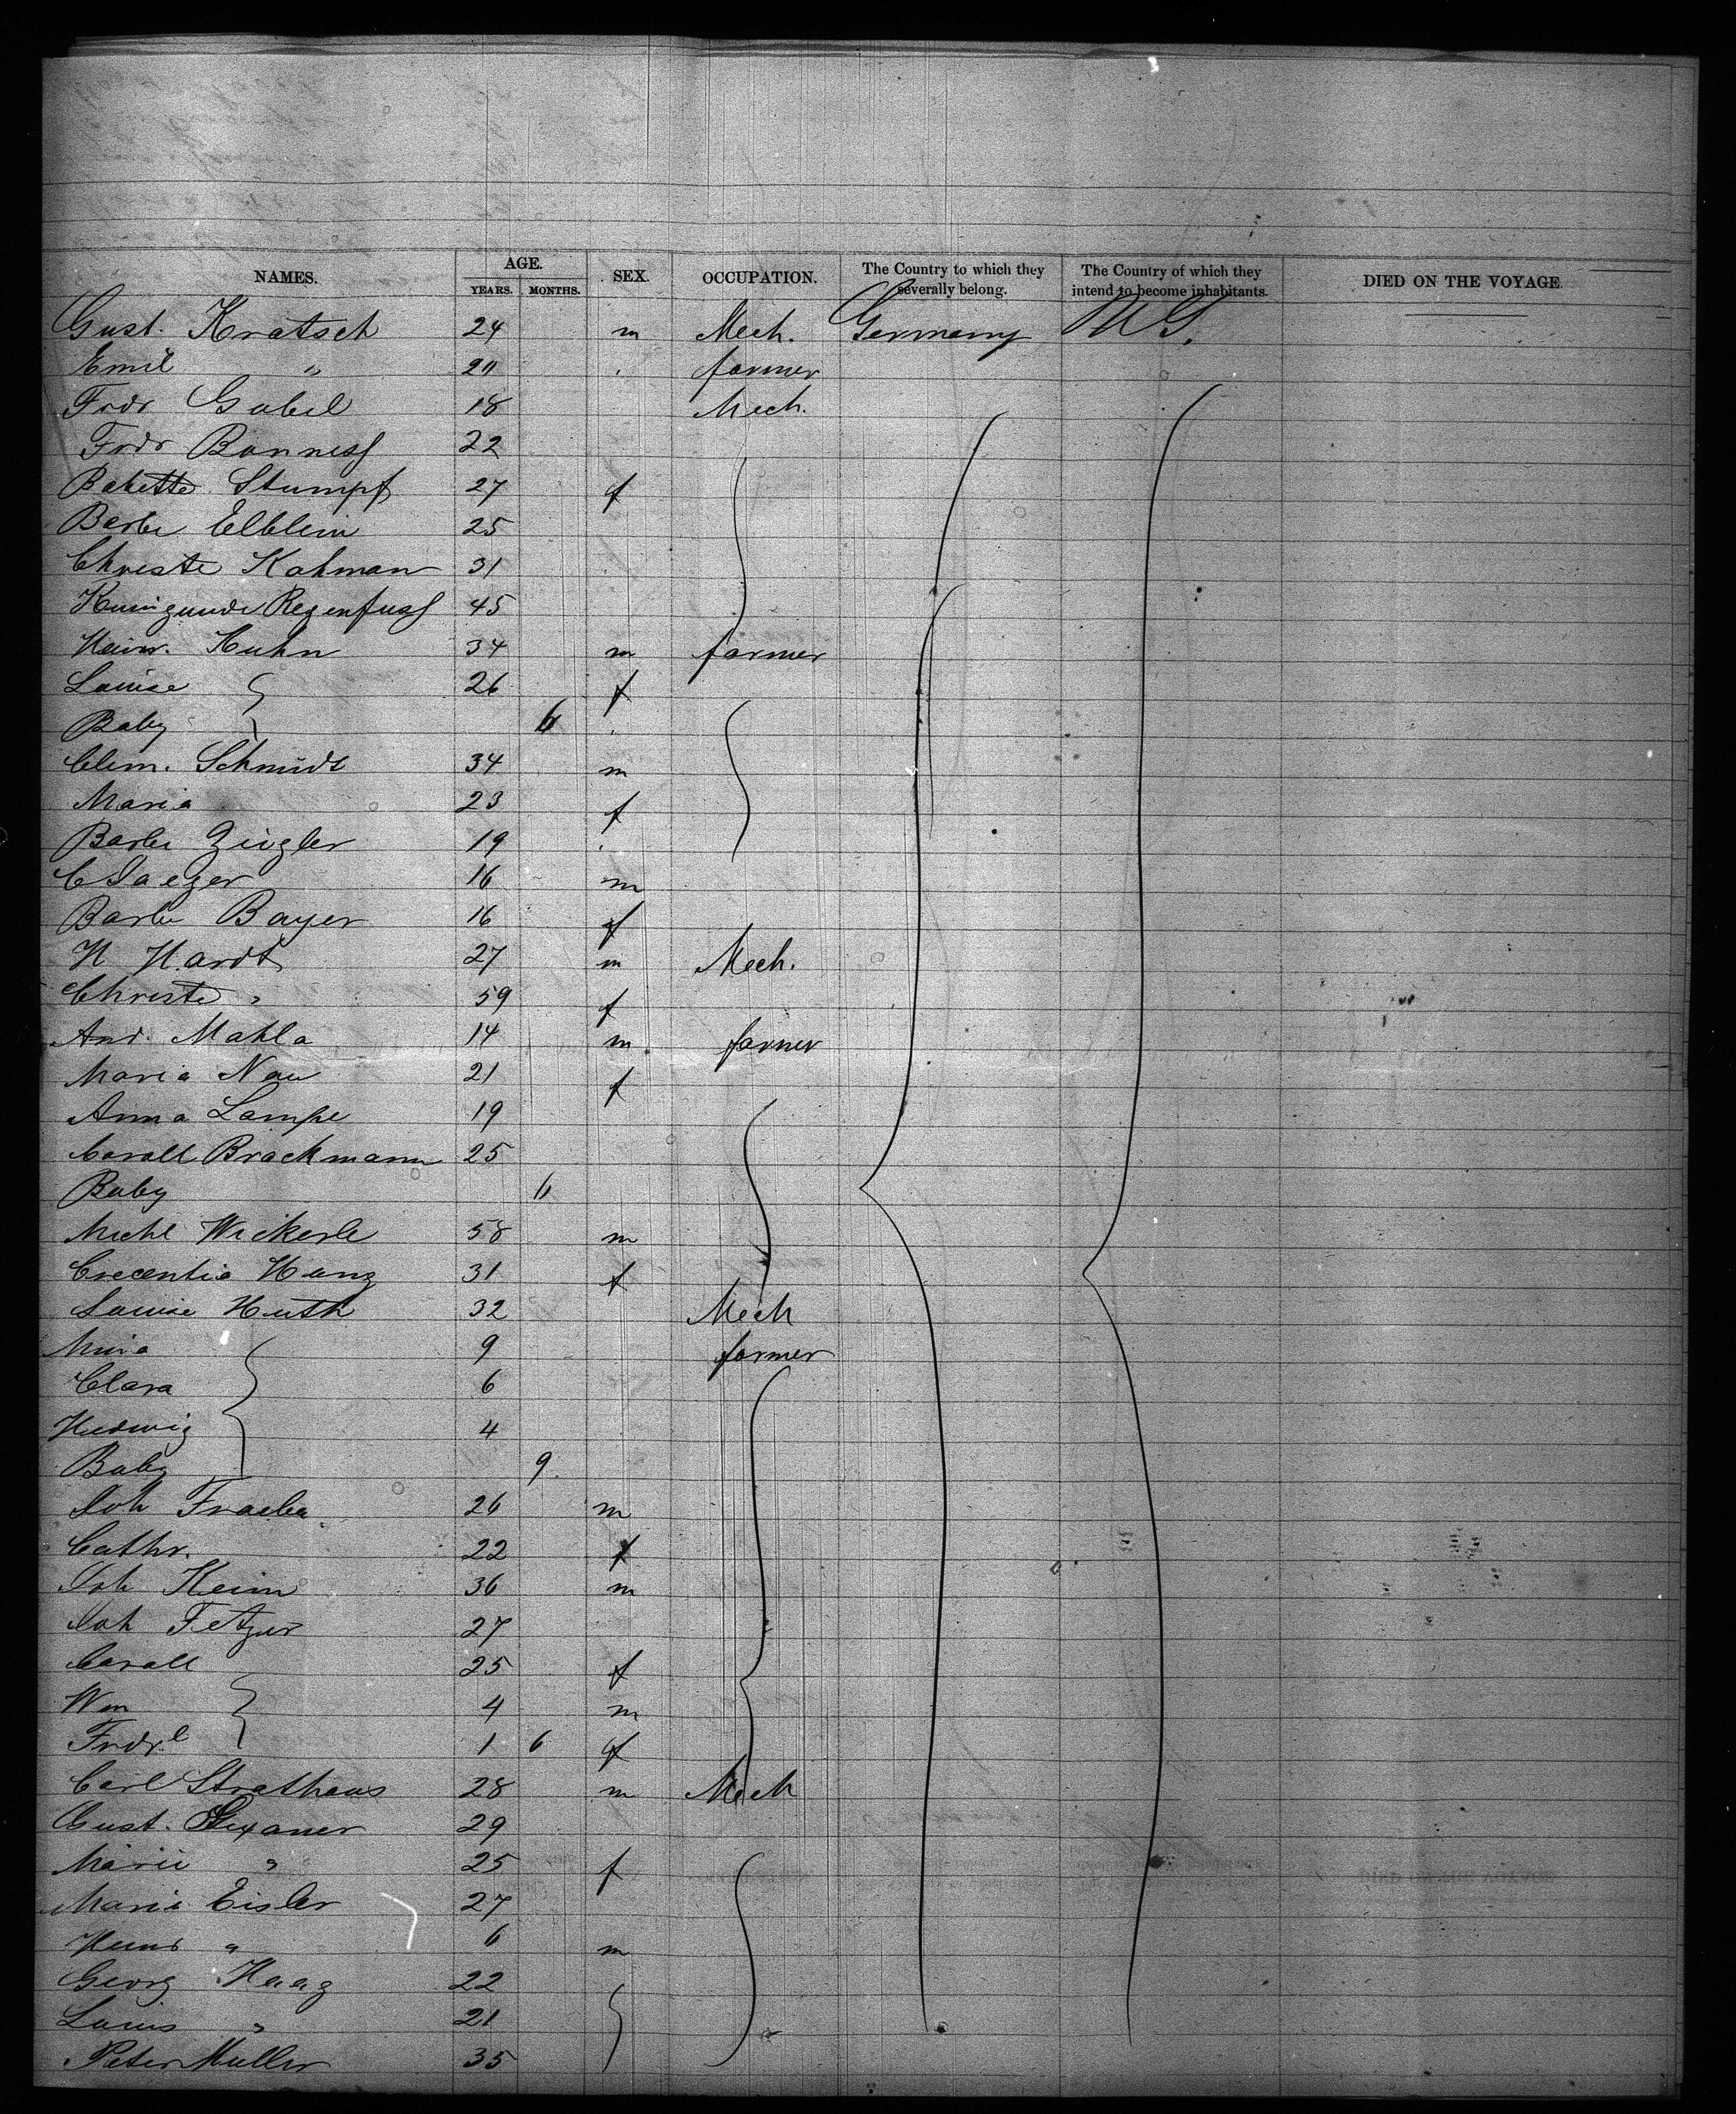 NAMES. AGE. SEX. OCCUPATION. The Country to which they severally belong. The Country of which they intend to become inhabitants. DIED ON THE VOYAGE.
YEARS. MONTHS.
Gust. Kratsch 24 m Mech. Germany US.
Emil " 20 farmer
Fror Gabel 18 Mech.
Fror Bonness 22
Babette Stumpf 27 f
Barbe Elblein 25
Christe Kohman 31
Kunigunde Regenfuss 45
Heinr. Kuhn 34 m farmer
Louise 26 f
Baby 6
Clem. Schmidt 34 m
Maria 23 f
Barbe Zeigler 19
C Jaeger 16 m
Barbe Bayer 16 f
H Hardt 27 m Mech.
Christe " 59 f
And. Mahla 14 m farmer
Maria Nau 21 f
Anna Lampe 19
Caroll Brackmann 25
Baby 6
Michl Wickerle 58 m
Crecentia Hang 31 f
Louise Huth 32 Mech
Mina 9 farmer
Clara 6
Hedwig 4
Baby 9
Joh 26 m
Cathr. 22 f
Joh Keim 36 m
Joh Fetzer 27
Caroll 25 f
Wm 4 m
Fridr.e 1 6 f
Carl Strathaus 28 m Mech
Gust. 29
Marie " 25 f
Marie Eisler 27
Heinr " 6 m
Georg Haag 22
Louis " 21
Peter Muller 35